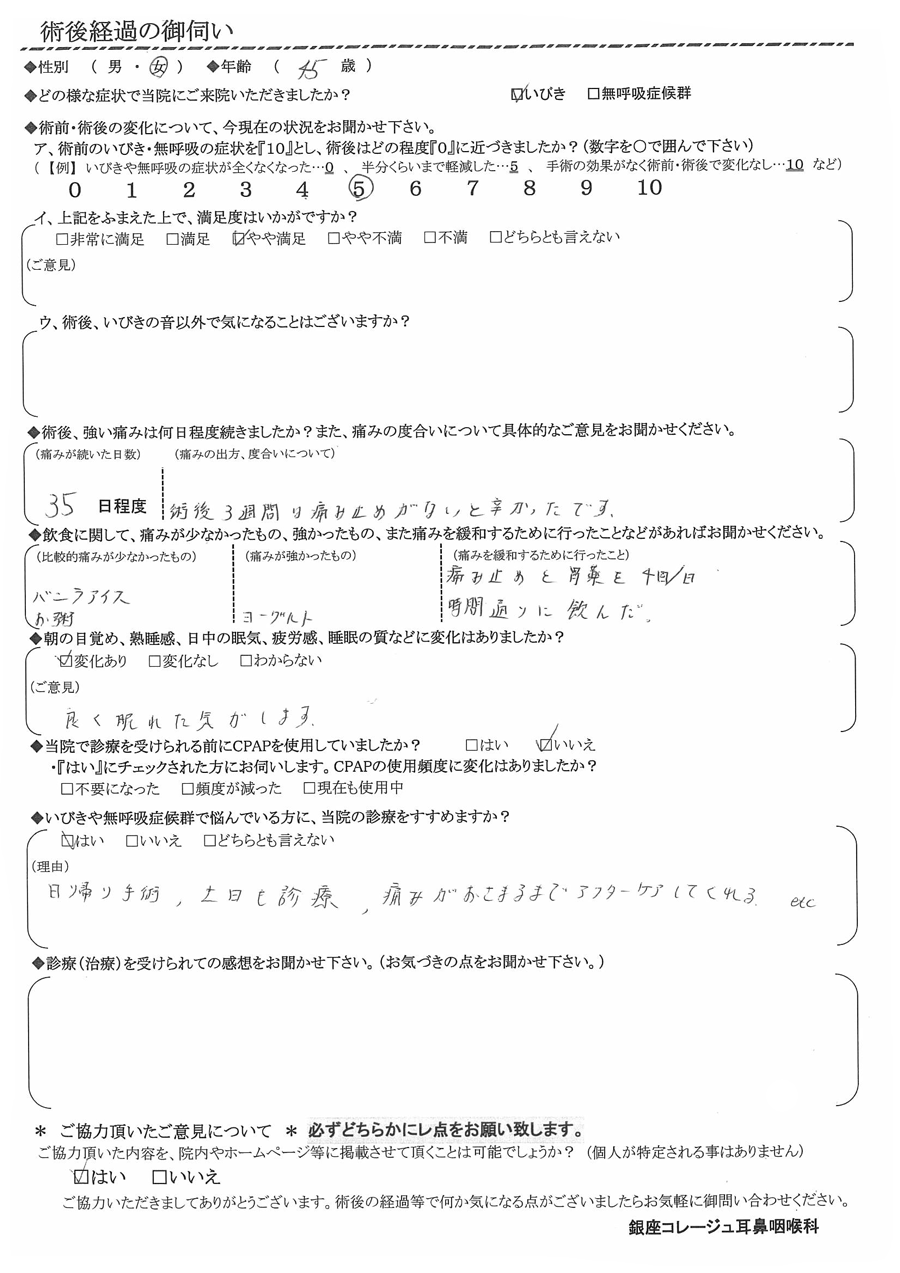 術後経過の御伺い
◆性別 ( 男 ・ 女 ) ◆年齢 ( 45 歳 )
◆どの様な症状で当院にご来院いただきましたか? ☑いびき □無呼吸症候群
◆術前・術後の変化について、今現在の状況をお聞かせ下さい。
ア、術前のいびき・無呼吸の症状を『10』とし、術後はどの程度『0』に近づきましたか?(数字を〇で囲んで下さい)
(【例】いびきや無呼吸の症状が全くなくなった…0 、 半分くらいまで軽減した…5 、 手術の効果がなく術前・術後で変化なし…10 など)
0 1 2 3 4 5 6 7 8 9 10
イ、上記をふまえた上で、満足度はいかがですか?
□非常に満足 □満足 ☑やや満足 □やや不満 □不満 □どちらとも言えない
(ご意見)
ウ、術後、いびきの音以外で気になることはございますか?
◆術後、強い痛みは何日程度続きましたか?また、痛みの度合いについて具体的なご意見をお聞かせください。
(痛みが続いた日数) (痛みの出方、度合いについて)
35 日程度 術後3週間は痛み止めがないと辛かったです。
◆飲食に関して、痛みが少なかったもの、強かったもの、また痛みを緩和するために行ったことなどがあればお聞かせください。
(比較的痛みが少なかったもの) (痛みが強かったもの) (痛みを緩和するために行ったこと)
痛み止めと胃薬を4回/日
バニラアイス
お粥 ヨーグルト 時間通りに飲んだ。
◆朝の目覚め、熟睡感、日中の眠気、疲労感、睡眠の質などに変化はありましたか?
☑変化あり □変化なし □わからない
(ご意見)
良く眠れた気がします。
◆当院で診療を受けられる前にCPAPを使用していましたか? □はい ☑いいえ
・『はい』にチェックされた方にお伺いします。CPAPの使用頻度に変化はありましたか?
□不要になった □頻度が減った □現在も使用中
◆いびきや無呼吸症候群で悩んでいる方に、当院の診療をすすめますか?
☑はい □いいえ □どちらとも言えない
(理由)
日帰り手術, 土日も診療, 痛みがおさまるまでアフターケアしてくれる. etc
◆診療(治療)を受けられての感想をお聞かせ下さい。(お気づきの点をお聞かせ下さい。)
＊ ご協力頂いたご意見について ＊ 必ずどちらかにレ点をお願い致します。
ご協力頂いた内容を、院内やホームページ等に掲載させて頂くことは可能でしょうか? (個人が特定される事はありません)
☑はい □いいえ
ご協力いただきましてありがとうございます。術後の経過等で何か気になる点がございましたらお気軽に御問い合わせください。
銀座コレージュ耳鼻咽喉科